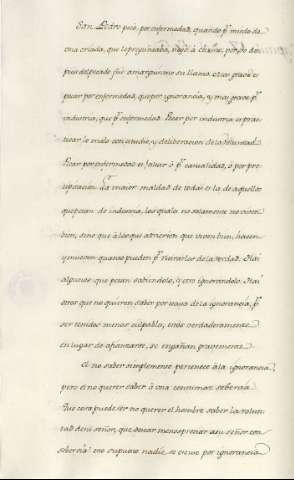 San Pedro pecó por enfermedad, quando pr miedo de
una criada, que le preguntaba, negó a Christo, por eso des
pues del pecado fue amarguisimo su llanto. Mas grave es
pecar por enfermedad, que por ignorancia, y mas grave pr
industria, que pr enfermedad. Pecar por industria es prac
ticar lo malo con estudio, y deliberacion de la Voluntad.
Pecar por enfermedad es faltar ó pr casualidad, ó por pre
cipitacion. La maior maldad de todas es la de aquellos
que pecan de industria, los quales no solamente no viven
bien, sino que á los que atraerian que viven bien, hacen
y mueven quando pueden pr desviarlos de la verdad. Hai
algunos que pecan sabiendolo, y otro ignorandolo. Hai
otros que no quieren saber por causa de la ignorancia, pr
ser tenidos menos culpables, estos verdaderamente
en lugar de afianzarse, se engañan gravemente.
El no saber simplemente pertenece á la ignorancia,
pero el no querer saber á una continua soberbia
Que cosa puede ser no querer el hombre saber la volun
tad de su señor, que desear menospreciar a su señor con
soberbia? eno supuesto nadie se escuse por ignorancia